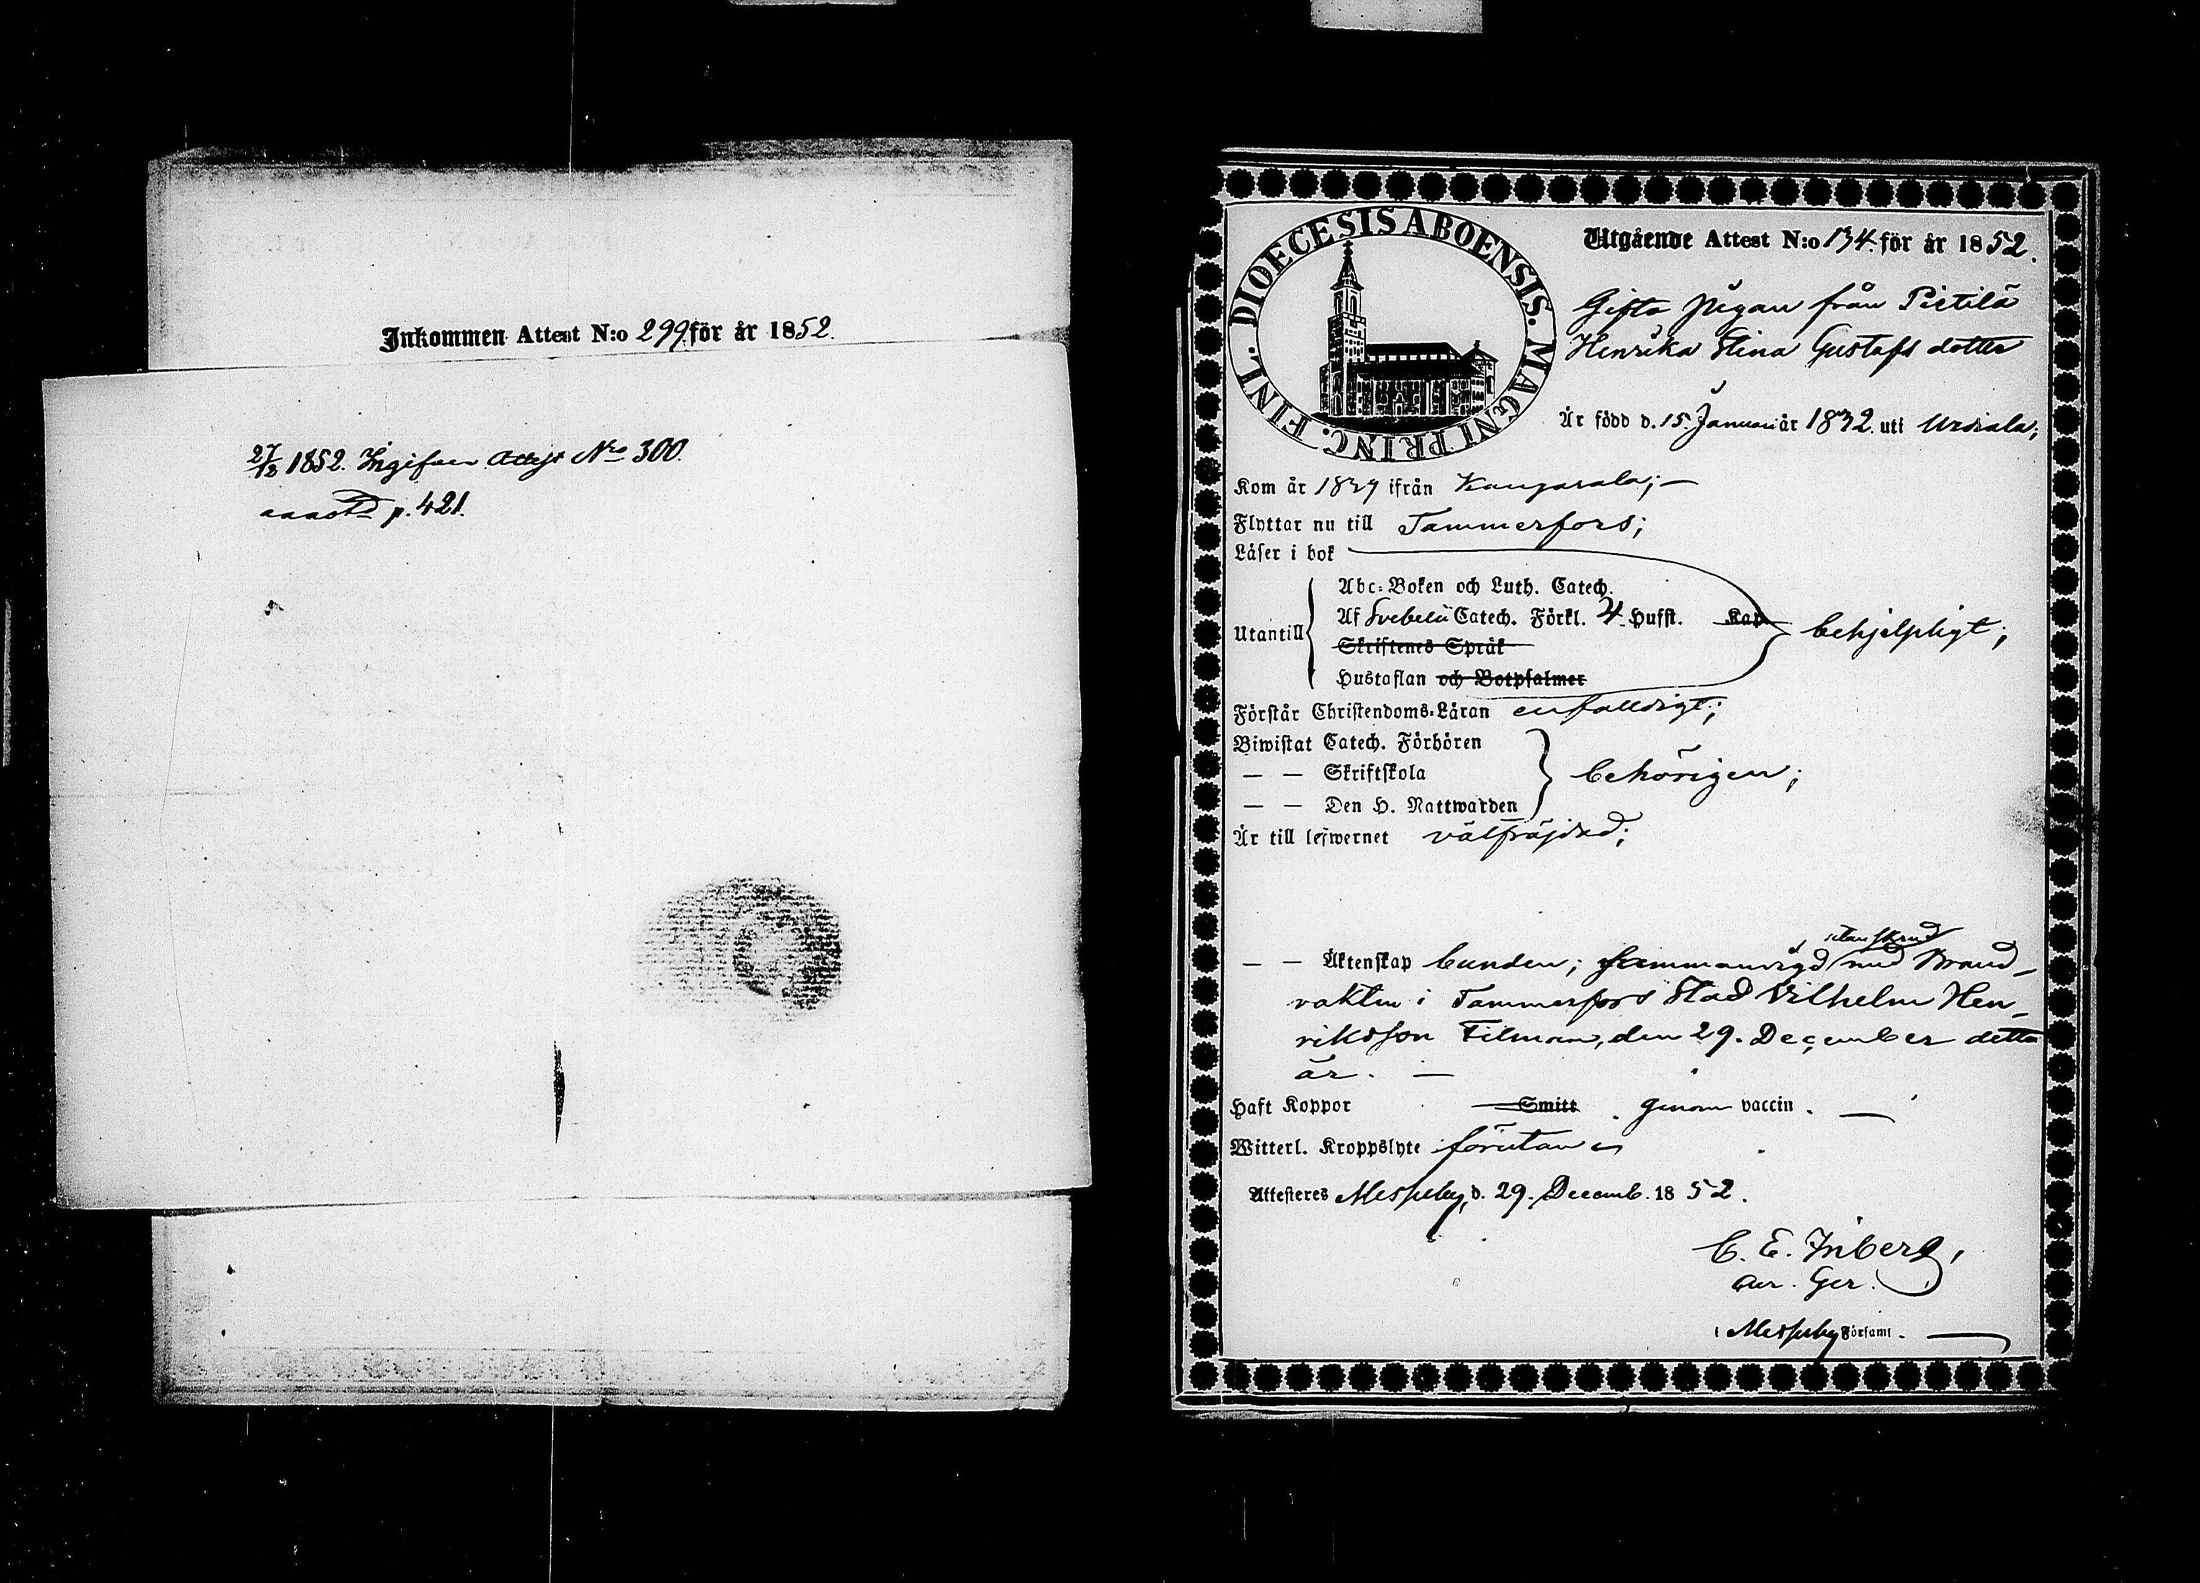 Inkommen Attest N:o 299 för år 1852.
27/12 1852. Ingifven Attest No 300.
annot. p. 421.
DIOECESIS ABOENSIS. MAGNI PRINC. FINL.
Utgående Attest N:o 134. för år 1852.
Gifta pigan från Pietilä
Henrika Stina Gustafs dotter
Är född d. 15. Januari år 1832. uti Urdiala;
Kom år 1839 ifrån Kangasala; —
Flyttar nu till Tammerfors;
Läser i bok
Abc-Boken och Luth. Catech.
Utantill Af Svebelii Catech. Förkl. 4. Hufst. Kap. behjelpligt;
Skriftenes Språk
Hustaflan och Botpsalmer
Förstår Christendoms-Läran enfalldigt;
Biwistat Catech. Förhören
— — Skriftskola behörigen;
— — Den H. Nattwarden
Är till lefwernet välfräjdad;
— — Äktenskap bunden; sammanvigd med Brand-
vakten i Tammerfors Stad Vilhelm Hen-
riksson Filman, den 29. December detta
år. —
Haft Koppor Smitt. genom vaccin. —
Witterl. Kroppslyte förutan
Attesteres Messuby, d. 29. Decemb. 1852.
C. E. Inberg,
i Messuby Församl. —